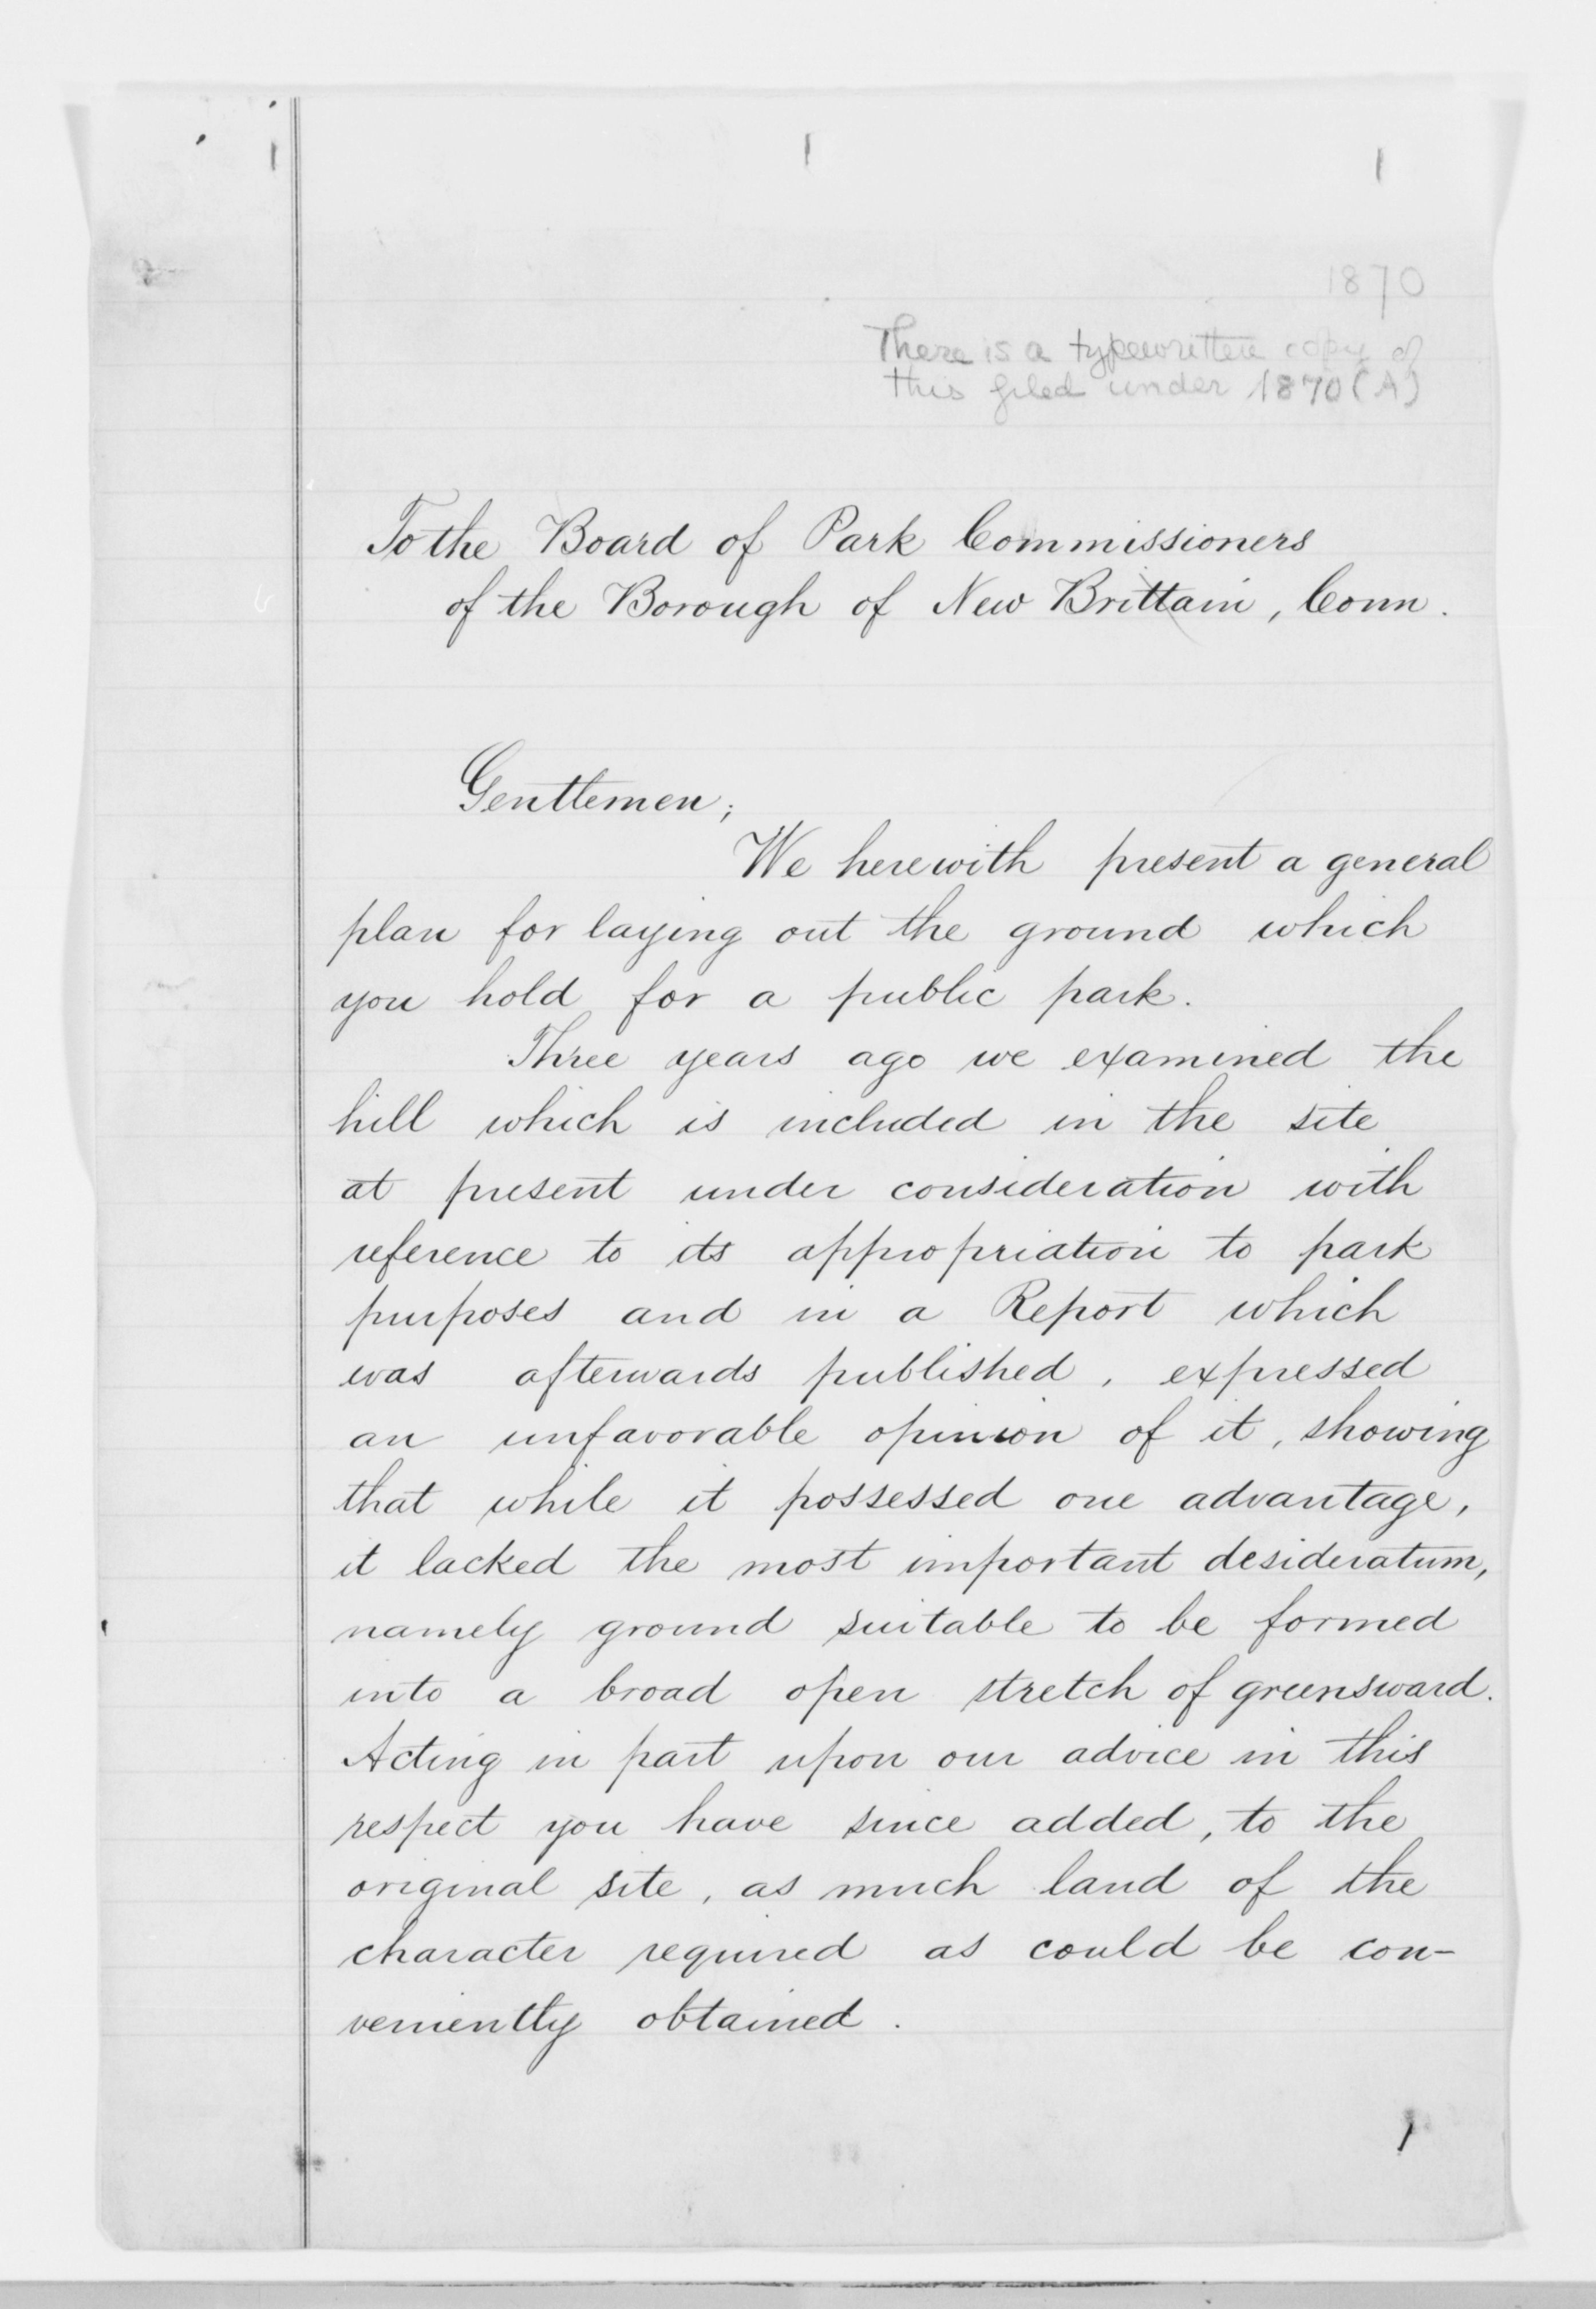 1870
There is a typewritten copy of
this filed under 1870 (A)
To the Board of Park Commissioners
of the Borough of New Brittain, Conn.
Gentlemen;
We herewith present a general
plan for laying out the ground which
you hold for a public park.
Three years ago we examined the
hill which is included in the site
at present under consideration with
reference to its appropriation to park
purposes and in a Report which
was afterwards published, expressed
an unfavorable opinion of it, showing
that while it possessed one advantage,
it lacked the most important desideratum,
namely ground suitable to be formed
into a broad open stretch of greensward.
Acting in part upon our advice in this
respect you have since added, to the
original site, as much land of the
character required as could be con-
veniently obtained.
1